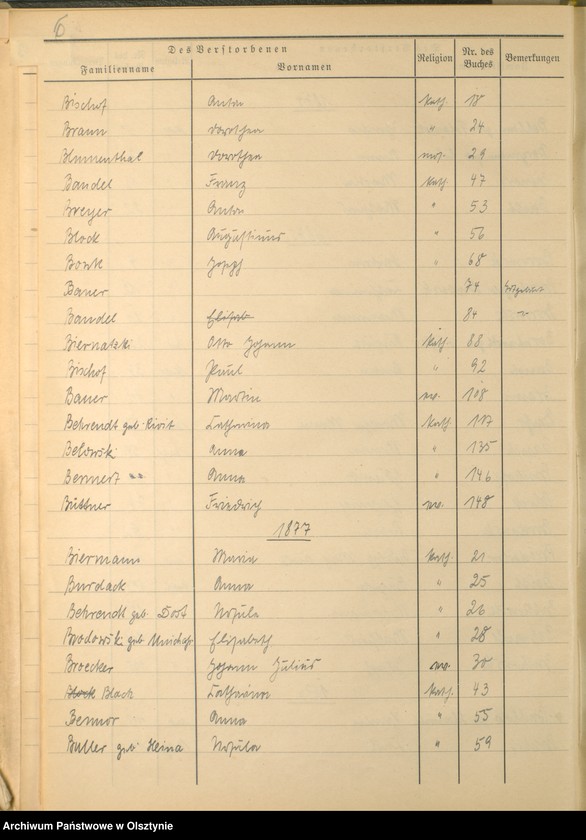 6
Des Verstorbenen
Familienname Vornamen Religion Nr. des Buches Bemerkungen
Bischof Anton kath. 18
Braun Dorothea " 24
Blumenthal Dorothea mos. 29
Bandel Franz kath. 47
Breyer Anton " 53
Block Augustinus " 56
Bonk Joseph " 68
Bauer 74
Bandel Elisab 84 "
Biernatzki Otto Johann kath. 88
Bischof Paul " 92
Bauer Martin ev. 108
Behrendt geb. Kirit Catharina kath. 117
Belowski Anna " 135
Bennert Anna " 146
Büttner Friedrich ev. 148
1877
Biermann Maria kath. 21
Burdack Anna " 25
Behrendt geb. Dost Ursula " 26
Brodowski geb. Elisabeth " 28
Broecker Johann Julius ev. 30
Block Black Catharina kath. 43
Bennor Anna " 55
Buller geb. Heina Ursula " 59
Archiwum Państwowe w Olsztynie